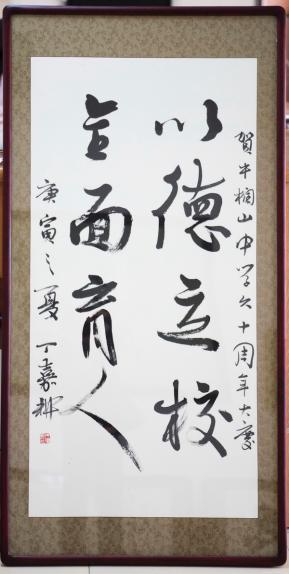 賀牛欄山中学六十周年大慶
以德立校
全面育人
庚寅之夏 丁嘉耕